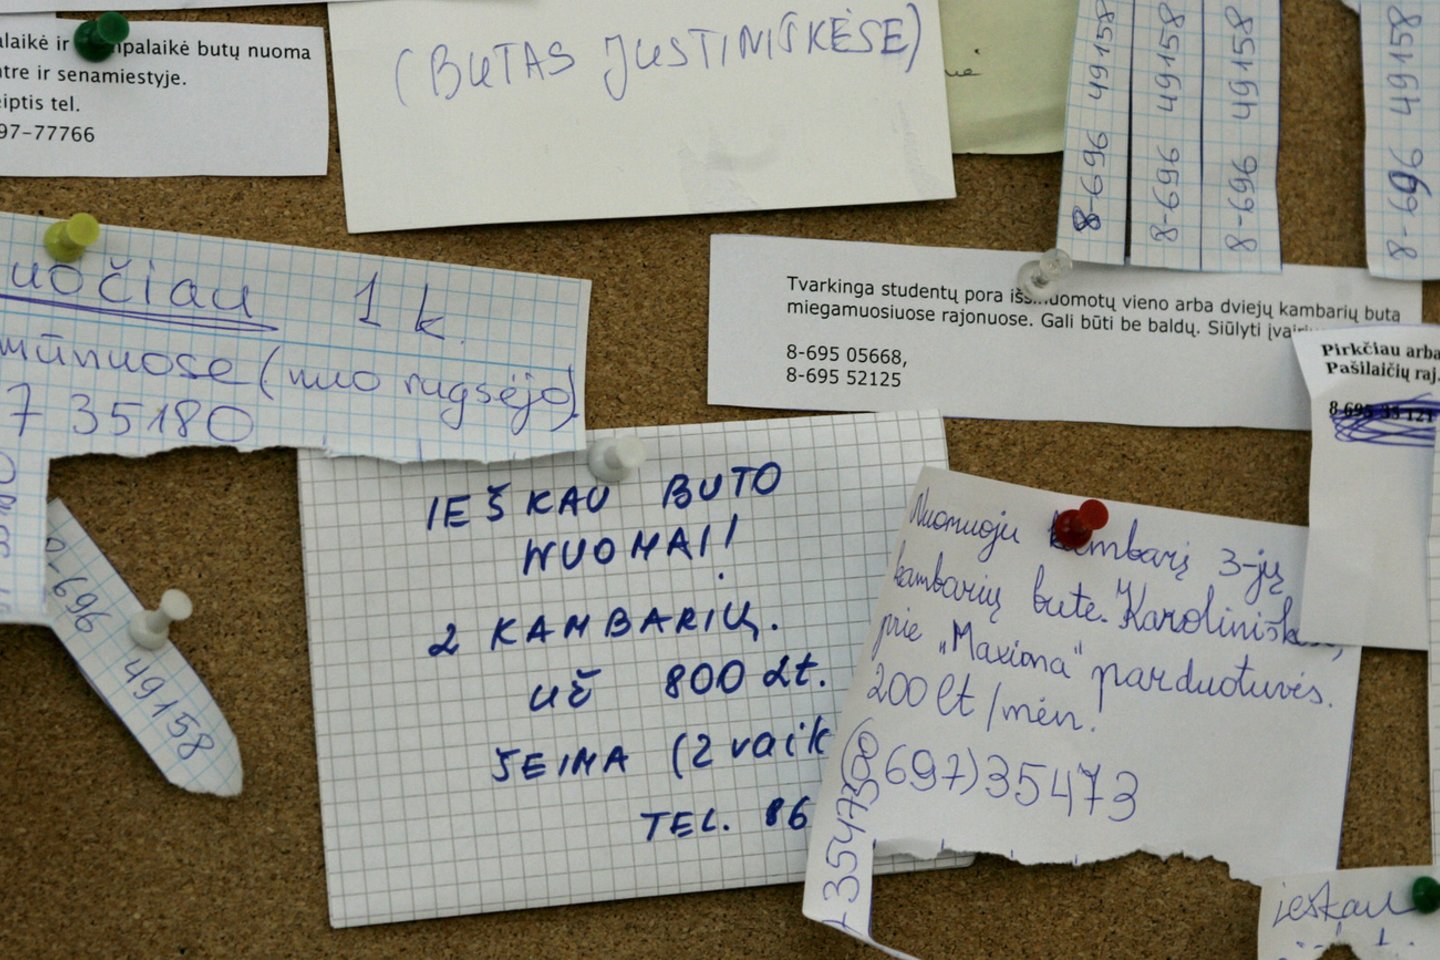 ir
butų nuoma
ir senamiestyje.
tel.
97-77766
(BUTAS JUSTINIŠKĖSE)
8-696 49158
8-696 49158
8-696 49158
8-696 49158
1 k.
(nuo rugsėjo)
7 35180
Tvarkinga studentų pora išsinuomotų vieno arba dviejų kambarių butą
miegamuosiuose rajonuose. Gali būti be baldų. Siūlyti
8-695 05668,
8-695 52125
Pirkčiau arba
Pašilaičių raj.
8-695 33 121
IEŠKAU BUTO
NUOMAI!
2 KAMBARIŲ.
UŽ 800 Lt.
ŠEIMA (2 vaik
TEL. 86
Nuomoju kambarį 3-jų
kambarių bute. Karoliniškės,
prie „Maxima" parduotuvės.
200 lt/mėn.
(8 697) 35473
35473
8-696 49158
ieškau